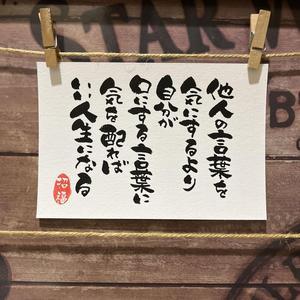 他人の言葉を
気にするより
自分が
口にする言葉に
気を配れば
いい人生になる
招福
STAR